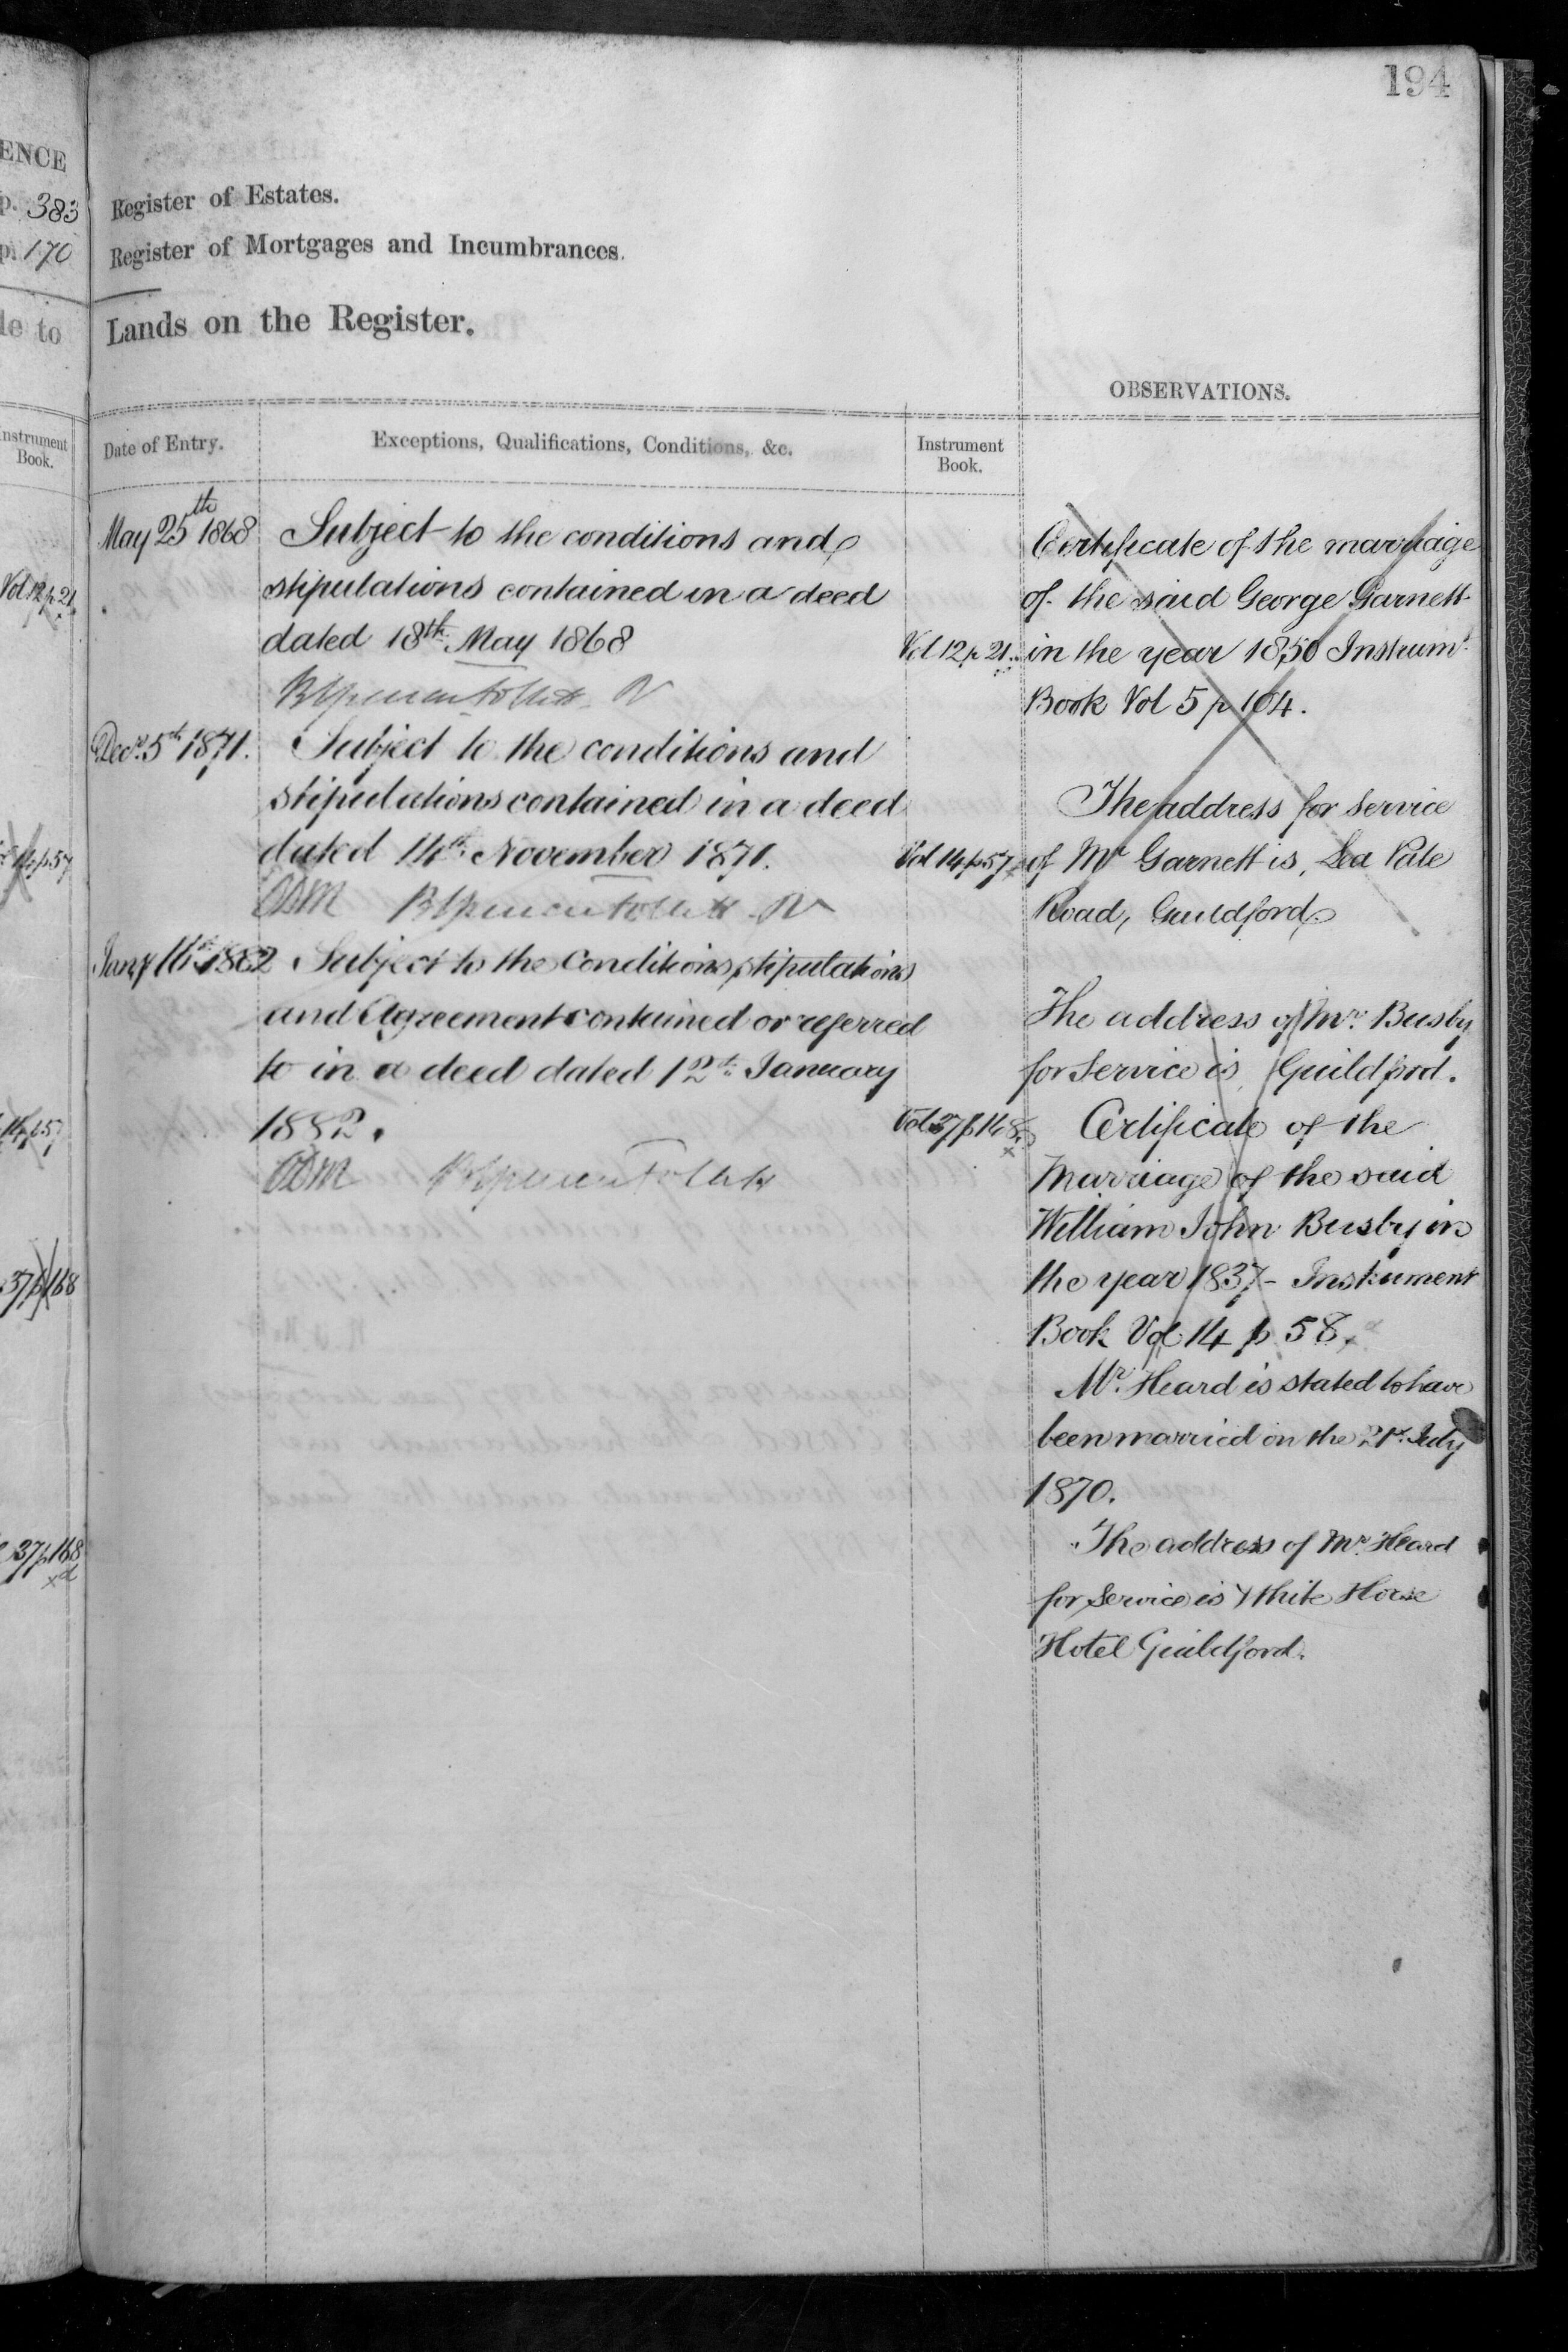 194
ENCE
p. 383
p. 170
le to
Instrument
Book.
Vol 12 p 21
14 p 57
14 p 57
37 p 168
37 p 168
Register of Estates.
Register of Mortgages and Incumbrances.
Lands on the Register.
OBSERVATIONS.
Date of Entry.
Exceptions, Qualifications, Conditions, &c.
Instrument
Book.
May 25th 1868
Subject to the conditions and
stipulations contained in a deed
dated 18th May 1868
Vol 12 p 21
Decr. 5th 1871.
Subject to the conditions and
stipulations contained in a deed
dated 14th November 1871.
Vol 14 p 57
Jany 16th 1882
Subject to the Conditions, stipulations
and Agreement contained or referred
to in a deed dated 12th January
1882.
Vol 37 p 168
Certificate of the marriage
of the said George Garnett
in the year 1850 Instrumt.
Book Vol 5 p 104.
The address for service
of Mr Garnett is, Lea Pale
Road, Guildford
The address of Mr. Busby
for Service is Guildford.
Certificate of the
Marriage of the said
William John Busby in
the year 1837 - Instrument
Book Vol 14 p 58.
Mr. Heard is stated to have
been married on the 21st. July
1870.
The address of Mr. Heard
for Service is White Horse
Hotel Guildford.